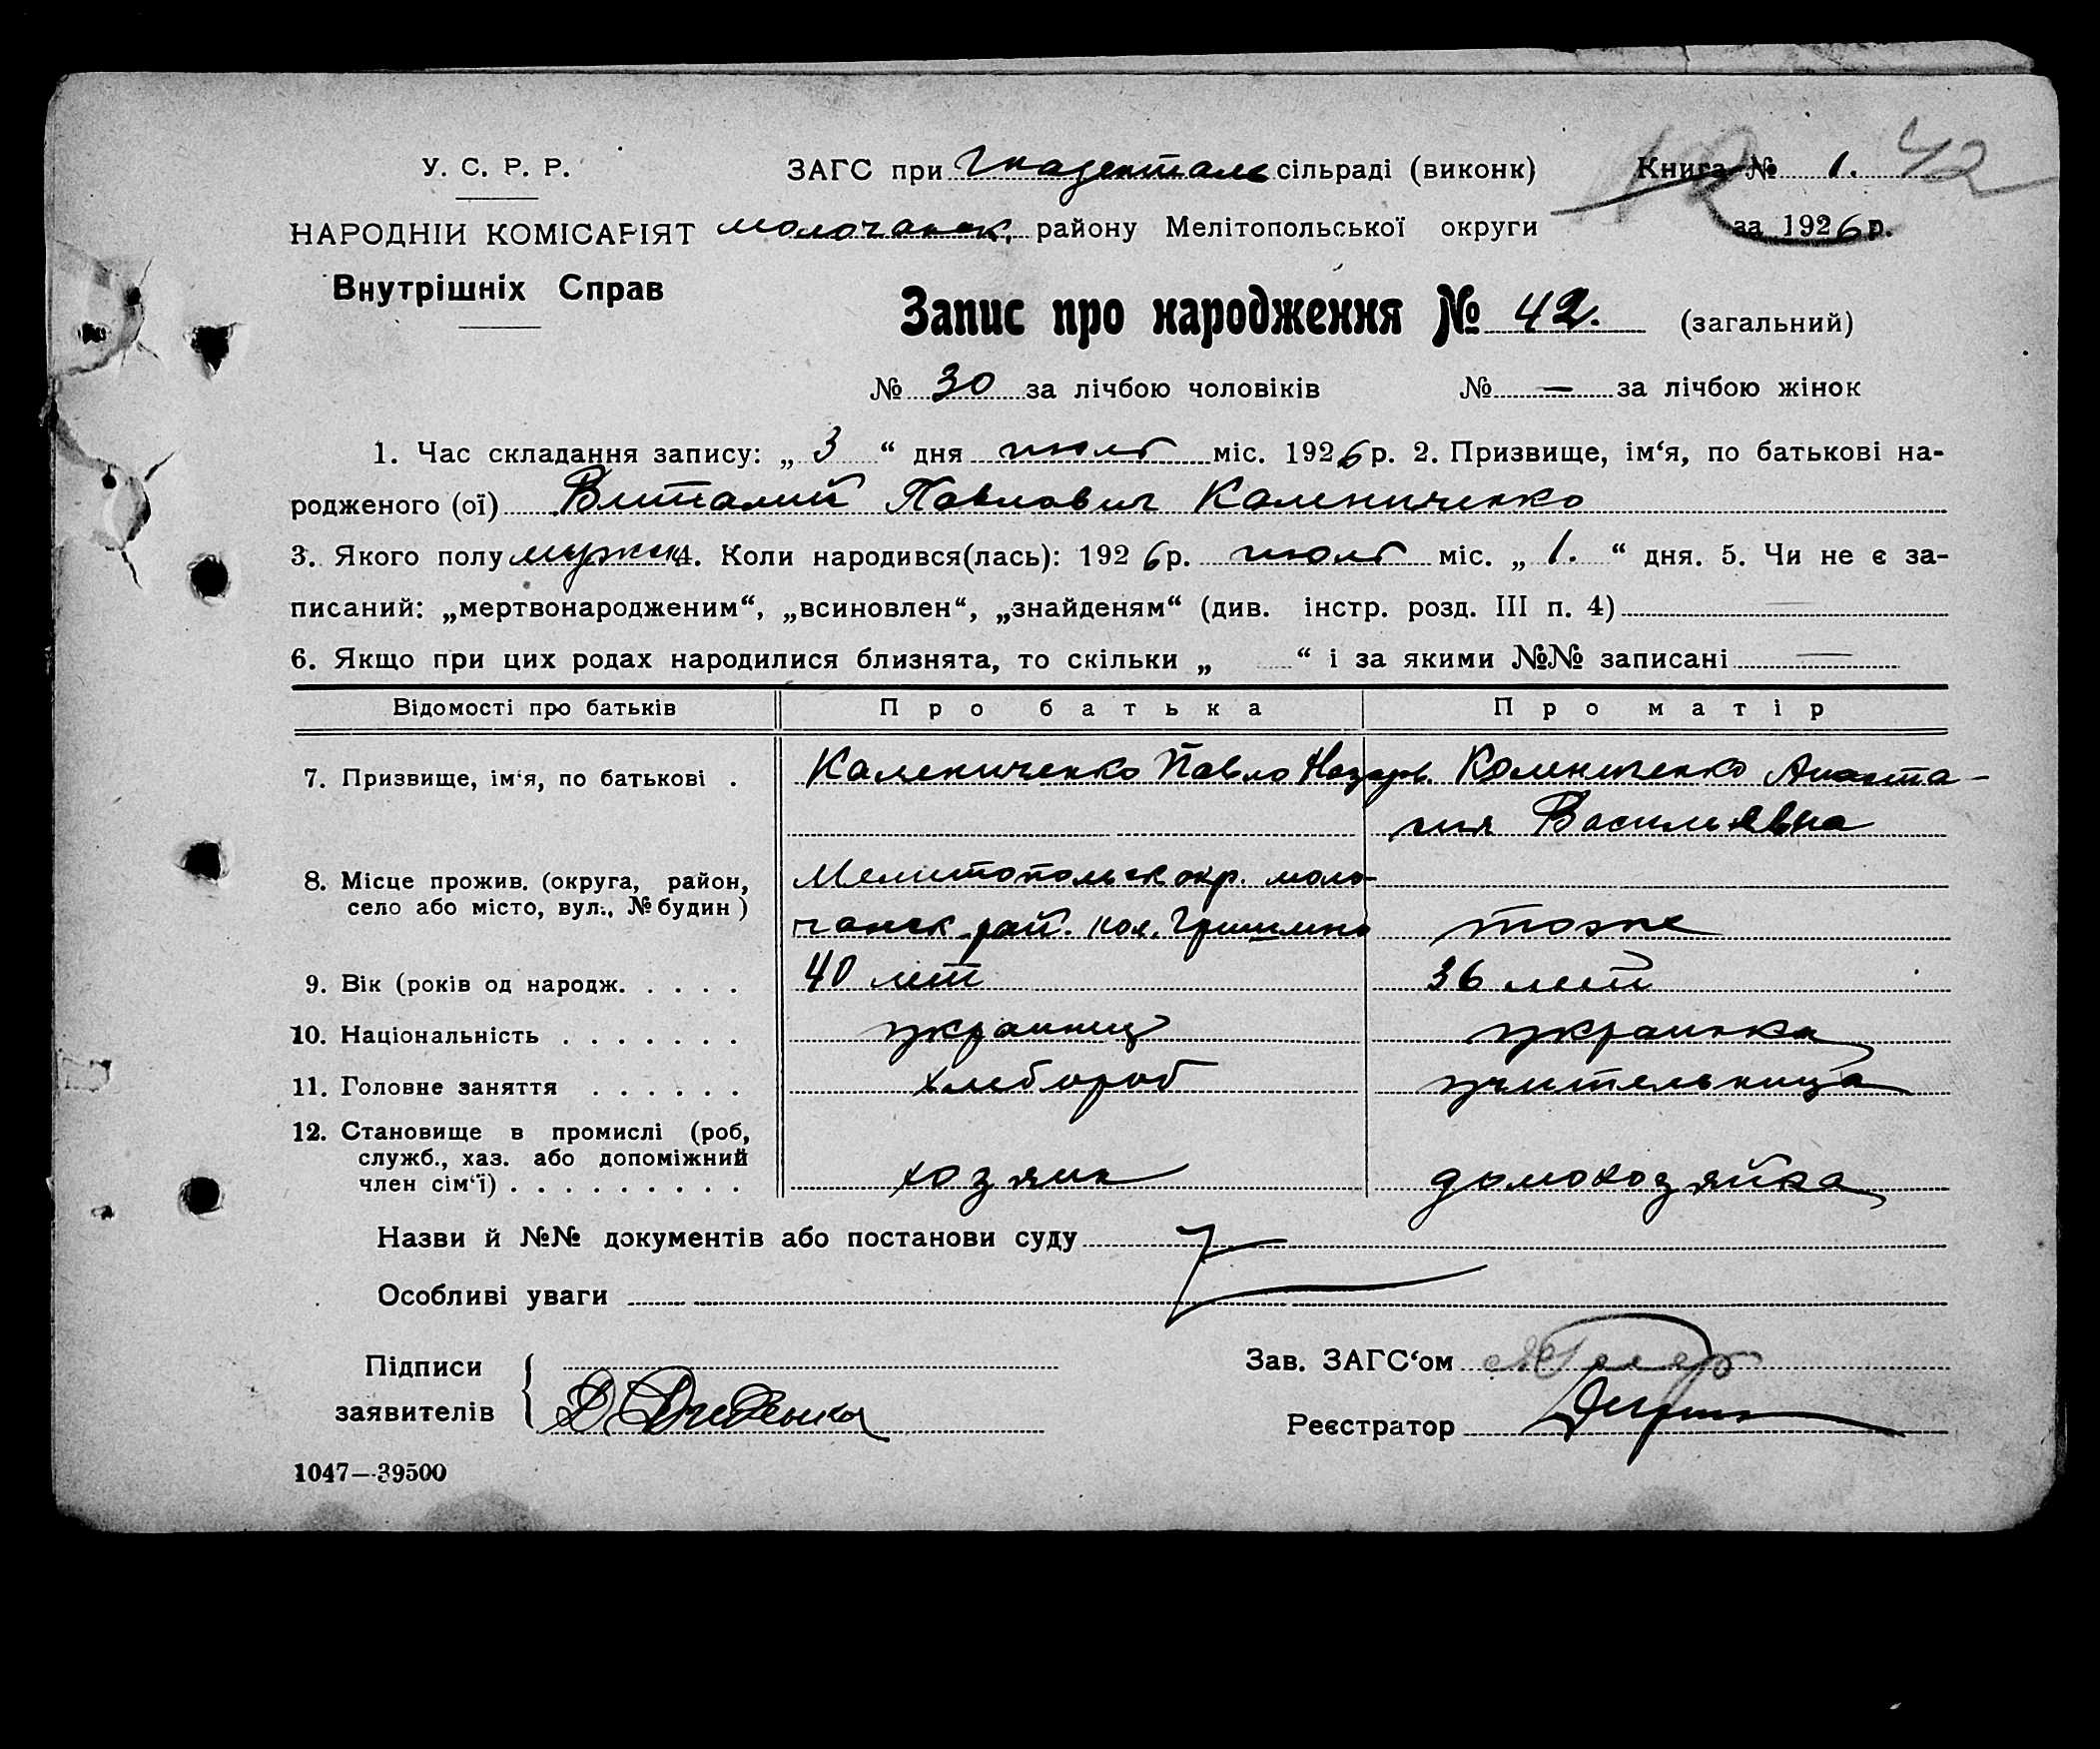 У. С. Р. Р.
ЗАГС при Гнаденталь сільраді (виконк)
Книга № 1. 42
НАРОДНІЙ КОМІСАРІЯТ
молочанск. району Мелітопольської округи
за 1926 р.
Внутрішніх Справ
Запис про народження № 42. (загальний)
№ 30 за лічбою чоловіків № — за лічбою жінок
1. Час складання запису: „ 3 “ дня июля міс. 1926 р. 2. Призвище, ім‘я, по батькові на-
родженого (ої) Виталий Павлович Калениченко
3. Якого полу мужск 4. Коли народився(лась): 1926 р. июля міс. „ 1. “ дня. 5. Чи не є за-
писаний: „мертвонародженим“, „всиновлен“, „знайденям“ (див. інстр. розд. III п. 4) —
6. Якщо при цих родах народилися близнята, то скільки „ “ і за якими №№ записані —
Відомості про батьків Про батька Про матір
7. Призвище, ім‘я, по батькові . Калениченко Павло Назаров. Калениченко Анаста-
сия Васильевна
8. Місце прожив. (округа, район, село або місто, вул., № будин ) Мелитопольск окр. моло-
чанск рай. кол. тоже
9. Вік (років од народж. . . . . 40 лет 36 лет
10. Національність . . . . . . . украинец украинка
11. Головне заняття . . . . . . хлебороб учительница
12. Становище в промислі (роб, служб., хаз. або допоміжний
член сім‘ї) . . . . . . . . . хозяин домохозяйка
Назви й №№ документів або постанови суду
Особливі уваги
Підписи
заявителів
Зав. ЗАГС‘ом
Реєстратор
1047—39500